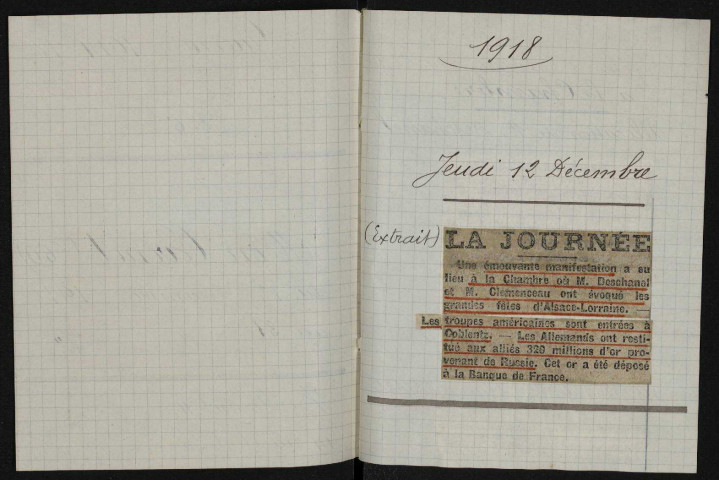 1918
Jeudi 12 Décembre
(Extrait) LA JOURNÉE
Une émouvante manifestation a eu
lieu à la Chambre où M. Deschanel
et M. Clemenceau ont évoqué les
grandes fêtes d'Alsace-Lorraine. —
Les troupes américaines sont entrées à
Coblentz. — Les Allemands ont resti-
tué aux alliés 320 millions d'or pro-
venant de Russie. Cet or a été déposé
à la Banque de France.